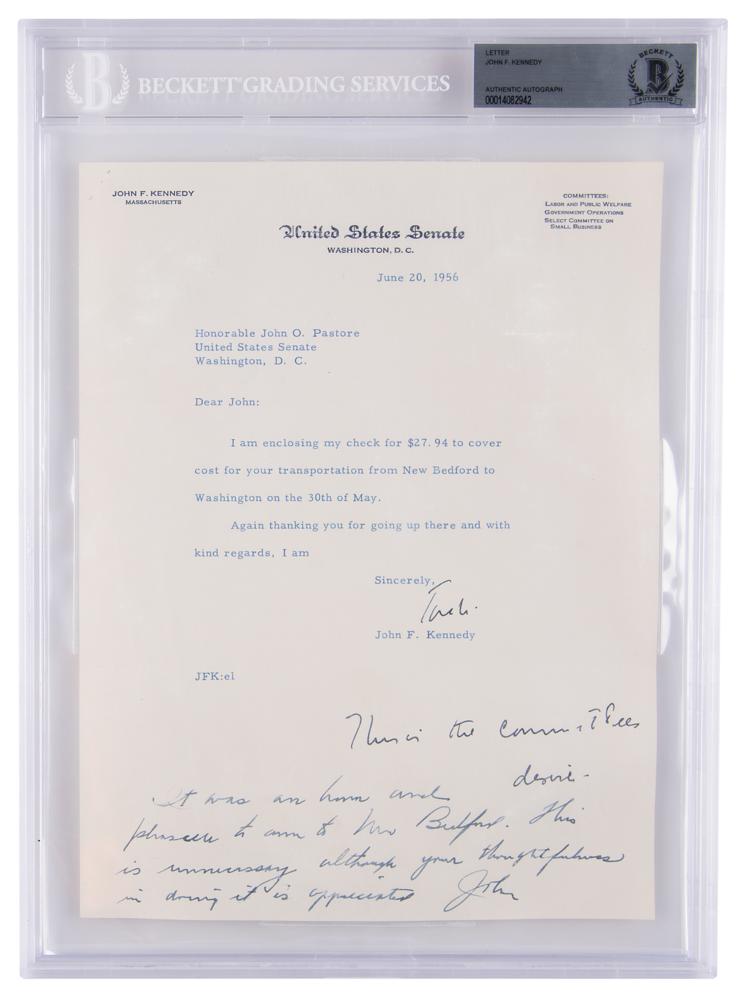 BECKETT GRADING SERVICES
LETTER
JOHN F. KENNEDY
AUTHENTIC AUTOGRAPH
00014082942
BECKETT
AUTHENTIC
JOHN F. KENNEDY
MASSACHUSETTS
COMMITTEES:
LABOR AND PUBLIC WELFARE
GOVERNMENT OPERATIONS
SELECT COMMITTEE ON
SMALL BUSINESS
United States Senate
WASHINGTON, D. C.
June 20, 1956
Honorable John O. Pastore
United States Senate
Washington, D. C.
Dear John:
I am enclosing my check for $27.94 to cover
cost for your transportation from New Bedford to
Washington on the 30th of May.
Again thanking you for going up there and with
kind regards, I am
Sincerely,
John F. Kennedy
JFK:el
This is the committees
desire-
It was an honor and
pleasure to come to New Bedford. This
is unnecessary although your thoughtfulness
in doing it is appreciated John